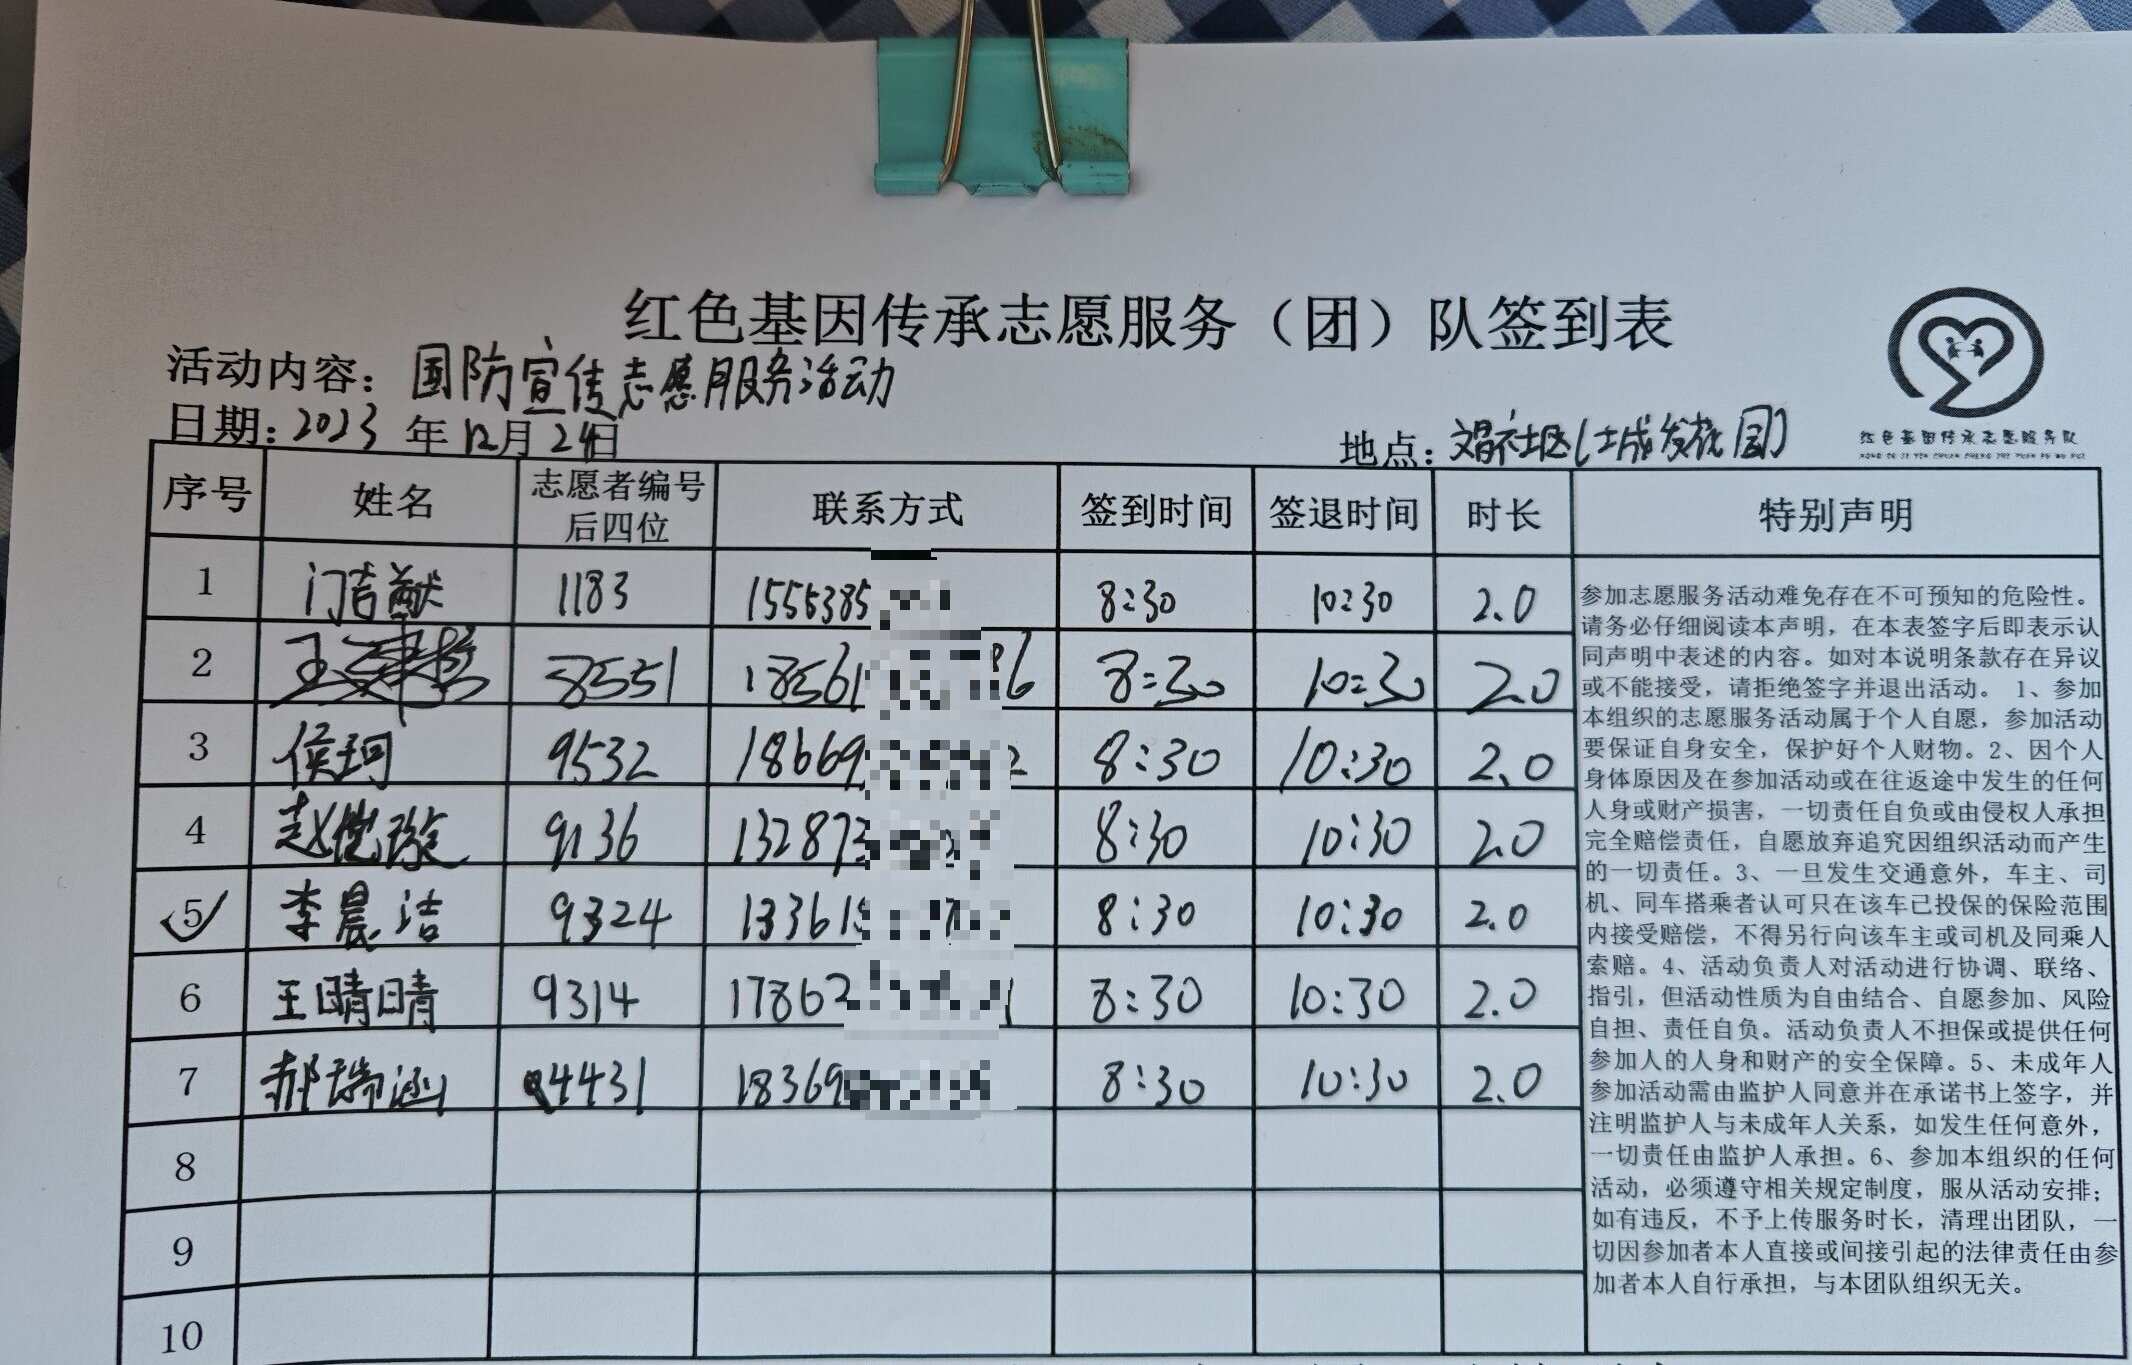 红色基因传承志愿服务（团）队签到表
活动内容：国防宣传志愿服务活动
日期：2023年12月24日
地点：文昌社区（城发花园）
红色基因传承志愿服务队
HONG SE JI YIN CHUAN CHENG ZHI YUAN FU WU DUI
序号 姓名 志愿者编号后四位 联系方式 签到时间 签退时间 时长 特别声明
1 门吉献 1183 1556385 8:30 10:30 2.0
2 王 8551 18561 86 8:30 10:30 2.0
3 侯珂 9532 18669 2 8:30 10:30 2.0
4 赵 9136 132873 8:30 10:30 2.0
5 李晨洁 9324 13361 8:30 10:30 2.0
6 王晴晴 9314 17862 8:30 10:30 2.0
7 郝瑞涵 4431 18369 8:30 10:30 2.0
8
9
10
参加志愿服务活动难免存在不可预知的危险性。
请务必仔细阅读本声明，在本表签字后即表示认
同声明中表述的内容。如对本说明条款存在异议
或不能接受，请拒绝签字并退出活动。 1、参加
本组织的志愿服务活动属于个人自愿，参加活动
要保证自身安全，保护好个人财物。2、因个人
身体原因及在参加活动或在往返途中发生的任何
人身或财产损害，一切责任自负或由侵权人承担
完全赔偿责任，自愿放弃追究因组织活动而产生
的一切责任。3、一旦发生交通意外，车主、司
机、同车搭乘者认可只在该车已投保的保险范围
内接受赔偿，不得另行向该车主或司机及同乘人
索赔。4、活动负责人对活动进行协调、联络、
指引，但活动性质为自由结合、自愿参加、风险
自担、责任自负。活动负责人不担保或提供任何
参加人的人身和财产的安全保障。5、未成年人
参加活动需由监护人同意并在承诺书上签字，并
注明监护人与未成年人关系，如发生任何意外，
一切责任由监护人承担。6、参加本组织的任何
活动，必须遵守相关规定制度，服从活动安排；
如有违反，不予上传服务时长，清理出团队，一
切因参加者本人直接或间接引起的法律责任由参
加者本人自行承担，与本团队组织无关。